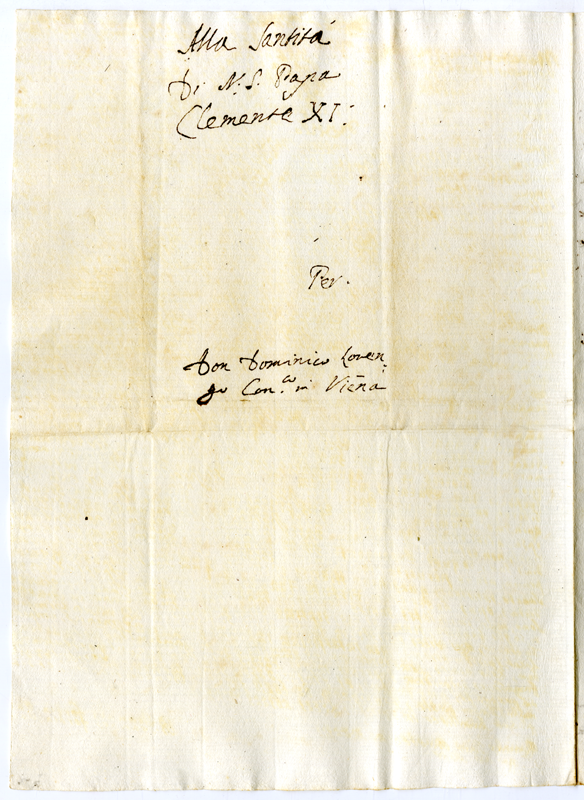 Alla Santità
Di N. S. Papa
Clemente XI.
Per.
Don Dominico Loren-
zo Con.co in Viēna